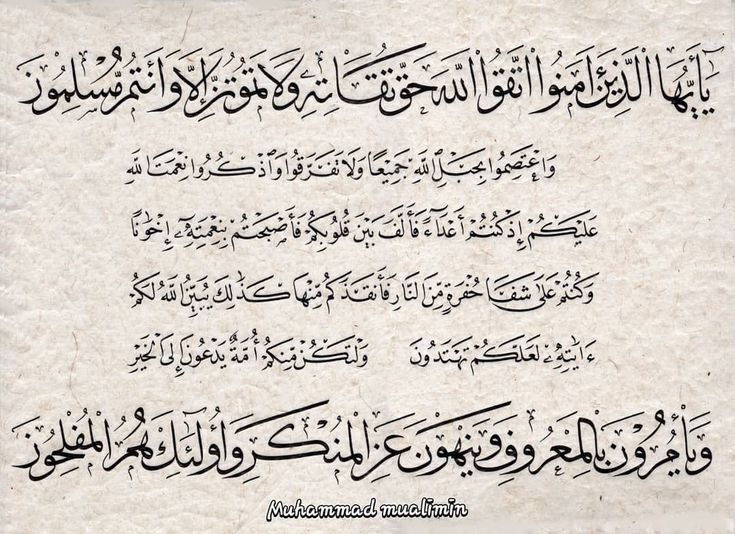 يَٰٓأَيُّهَا الَّذِينَ ءَامَنُوا اتَّقُوا اللَّهَ حَقَّ تُقَاتِهِۦ وَلَا تَمُوتُنَّ إِلَّا وَأَنتُم مُّسْلِمُونَ
وَاعْتَصِمُوا بِحَبْلِ اللَّهِ جَمِيعًا وَلَا تَفَرَّقُوا وَاذْكُرُوا نِعْمَتَ اللَّهِ
عَلَيْكُمْ إِذْ كُنتُمْ أَعْدَآءً فَأَلَّفَ بَيْنَ قُلُوبِكُمْ فَأَصْبَحْتُم بِنِعْمَتِهِۦٓ إِخْوَٰنًا
وَكُنتُمْ عَلَىٰ شَفَا حُفْرَةٍ مِّنَ النَّارِ فَأَنقَذَكُم مِّنْهَا كَذَٰلِكَ يُبَيِّنُ اللَّهُ لَكُمْ
ءَايَٰتِهِۦ لَعَلَّكُمْ تَهْتَدُونَ وَلْتَكُن مِّنكُمْ أُمَّةٌ يَدْعُونَ إِلَى الْخَيْرِ
وَيَأْمُرُونَ بِالْمَعْرُوفِ وَيَنْهَوْنَ عَنِ الْمُنكَرِ وَأُولَٰٓئِكَ هُمُ الْمُفْلِحُونَ
Muhammad mualimin